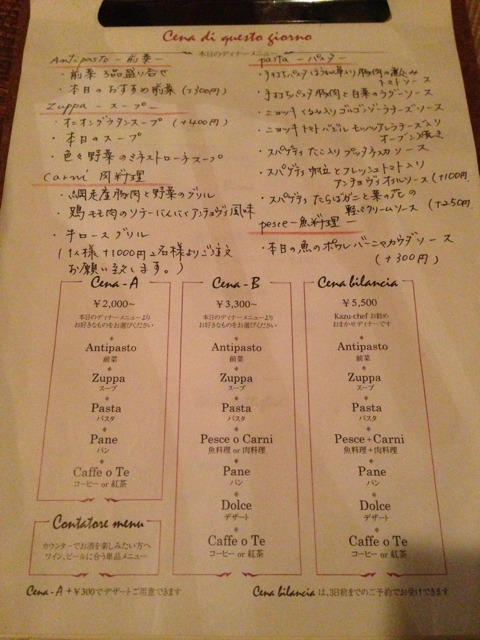 Cena di questo giorno
本日のディナーメニュー
Antipasto - 前菜 -
・前菜 3品盛り合せ
・本日のおすすめ前菜 (+300円)
Zuppa - スープ -
・オニオングラタンスープ (+400円)
・本日のスープ
・色々野菜のミネストローネスープ
Carni 肉料理
・網走産豚肉と野菜のグリル
・鶏モモ肉のソテー アンチョヴィ風味
・牛ロースグリル
(1人様+1000円 2名様よりご注文
お願い致します。)
pasta - パスタ -
・手打ちパスタ ほうれん草入り 豚肉の煮込み
トマトソース
・手打ちパスタ 豚肉と白菜のラグーソース
・ニョッキ くるみ入り ゴルゴンゾーラチーズソース
・ニョッキ トマト バジル モッツァレラチーズ入り
オーブン焼き
・スパゲティ たこ入り プッタネスカソース
・スパゲティ 帆立とフレッシュトマト入り
アンチョヴィオイルソース (+100円)
・スパゲティ たらばがにと菜の花の
軽いクリームソース (+250円)
pesce - 魚料理 -
・本日の魚のポワレ バーニャカウダソース
(+300円)
Cena-A
￥2,000~
本日のディナーメニューより
お好きなものをお選びください
Antipasto
前菜
Zuppa
スープ
Pasta
パスタ
Pane
パン
Caffe o Te
コーヒー or 紅茶
Cena-B
￥3,300~
本日のディナーメニューより
お好きなものをお選びください
Antipasto
前菜
Zuppa
スープ
Pasta
パスタ
Pesce o Carni
魚料理 or 肉料理
Pane
パン
Dolce
デザート
Caffe o Te
コーヒー or 紅茶
Cena bilancia
￥5,500
Kazu-chef お勧め
おまかせディナーです
Antipasto
前菜
Zuppa
スープ
Pasta
パスタ
Pesce+Carni
魚料理+肉料理
Pane
パン
Dolce
デザート
Caffe o Te
コーヒー or 紅茶
Contatore menu
カウンターでお酒を楽しみたい方へ
ワイン、ビールに合う単品メニュー
Cena-A +￥300でデザートご用意できます
Cena bilancia は、3日前までのご予約でお受けできます